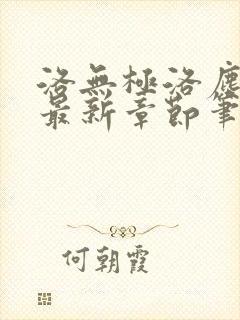 洛無極洛塵
最新章節筆
何朝霞